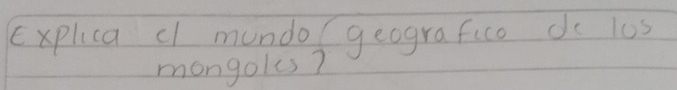 Explica el mundo geografico de los
mongoles?